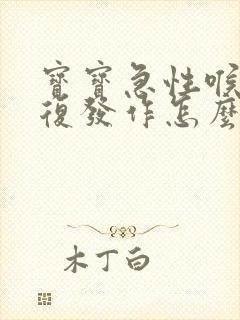 寶寶急性喉
復發作怎麼
木丁白